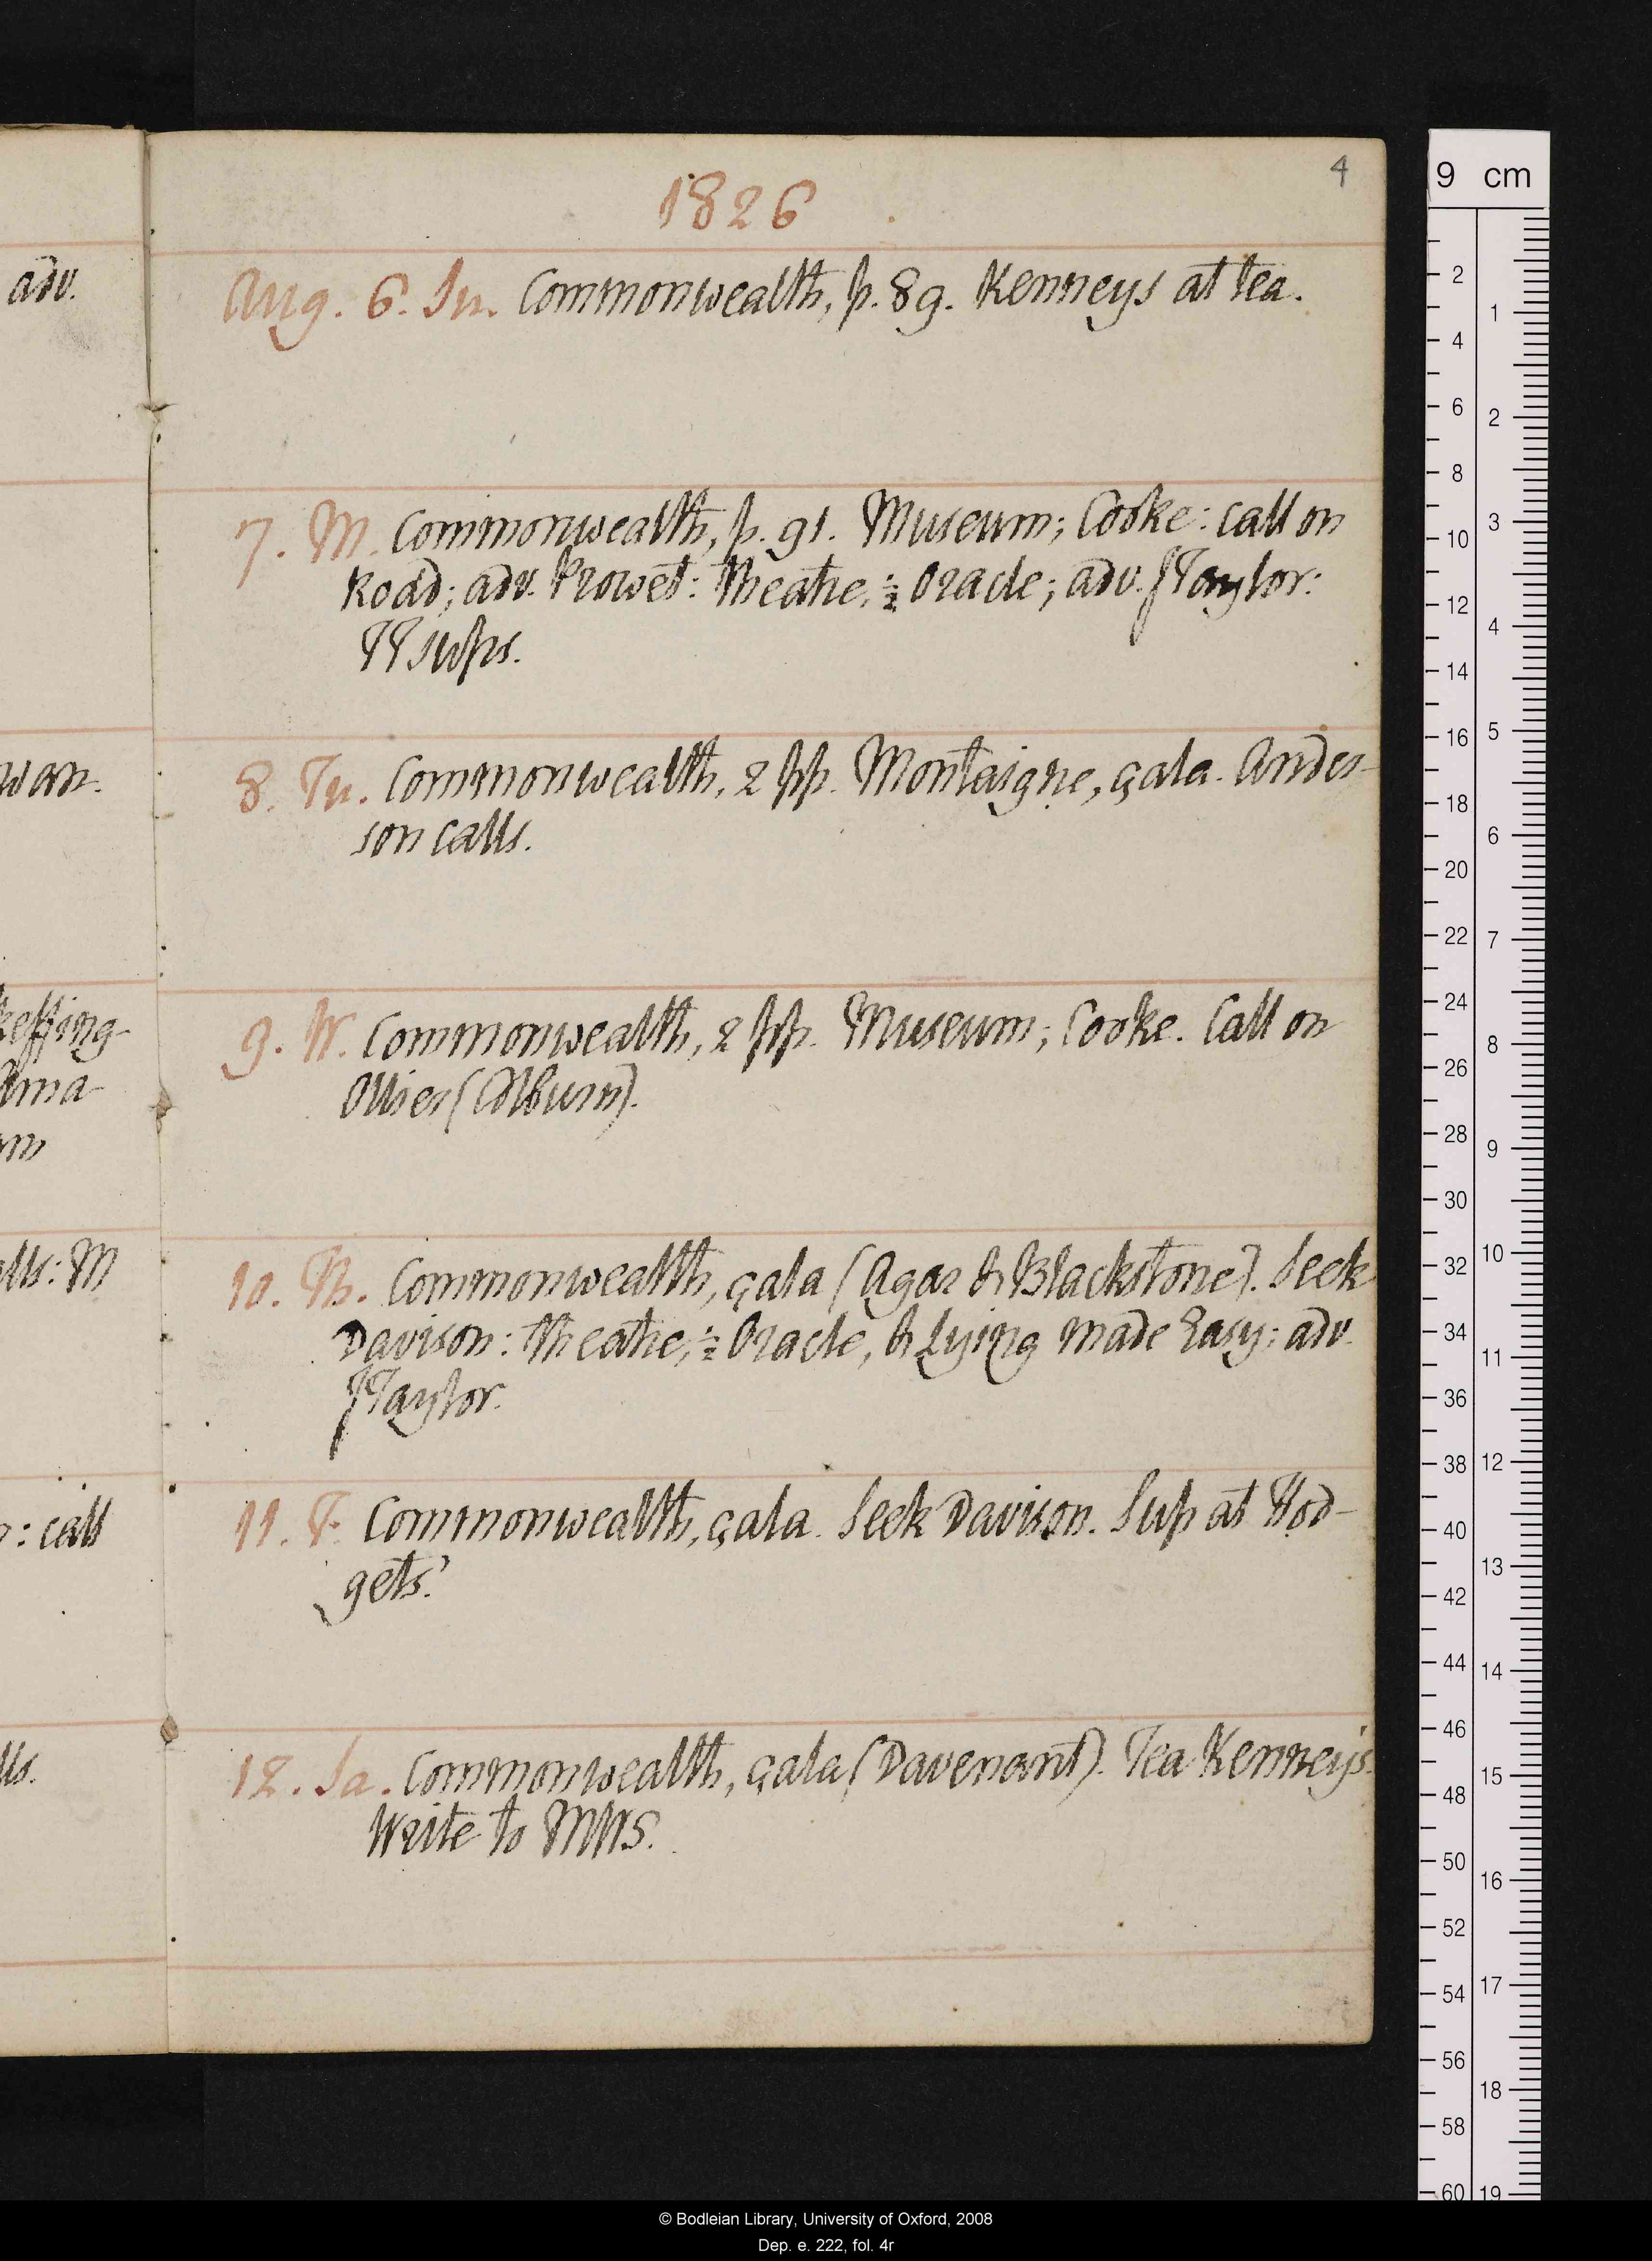 4
1826
adv.
Aug. 6. Su. Commonwealth, p. 89. Kenneys at tea.
7. M. Commonwealth, p. 91. Museum; Cooke: call on
Road; adv. Prowet: Theatre, ½ Oracle; adv. JTaylor:
TT sups.
wan-
8. Tu. Commonwealth, 2 pp. Montaigne, çala. Ander-
son calls.
keffing-
9. W. Commonwealth, 2 pp. Museum; Cooke. Call on
Ollier (Colburn).
lls: M
10. Th. Commonwealth, çala (Agar & Blackstone). Seek
Davison: Theatre, ½ Oracle, & Lying Made Easy; adv.
JTaylor.
: call
11. F. Commonwealth, çala. Seek Davison. Sup at Hod-
gets'.
lls.
12. Sa. Commonwealth, çala (Davenant). Tea Kenneys.
Write to MWS.
9 cm
2
4
6
8
10
12
14
16
18
20
22
24
26
28
30
32
34
36
38
40
42
44
46
48
50
52
54
56
58
60
1
2
3
4
5
6
7
8
9
10
11
12
13
14
15
16
17
18
19
© Bodleian Library, University of Oxford, 2008
Dep. e. 222, fol. 4r